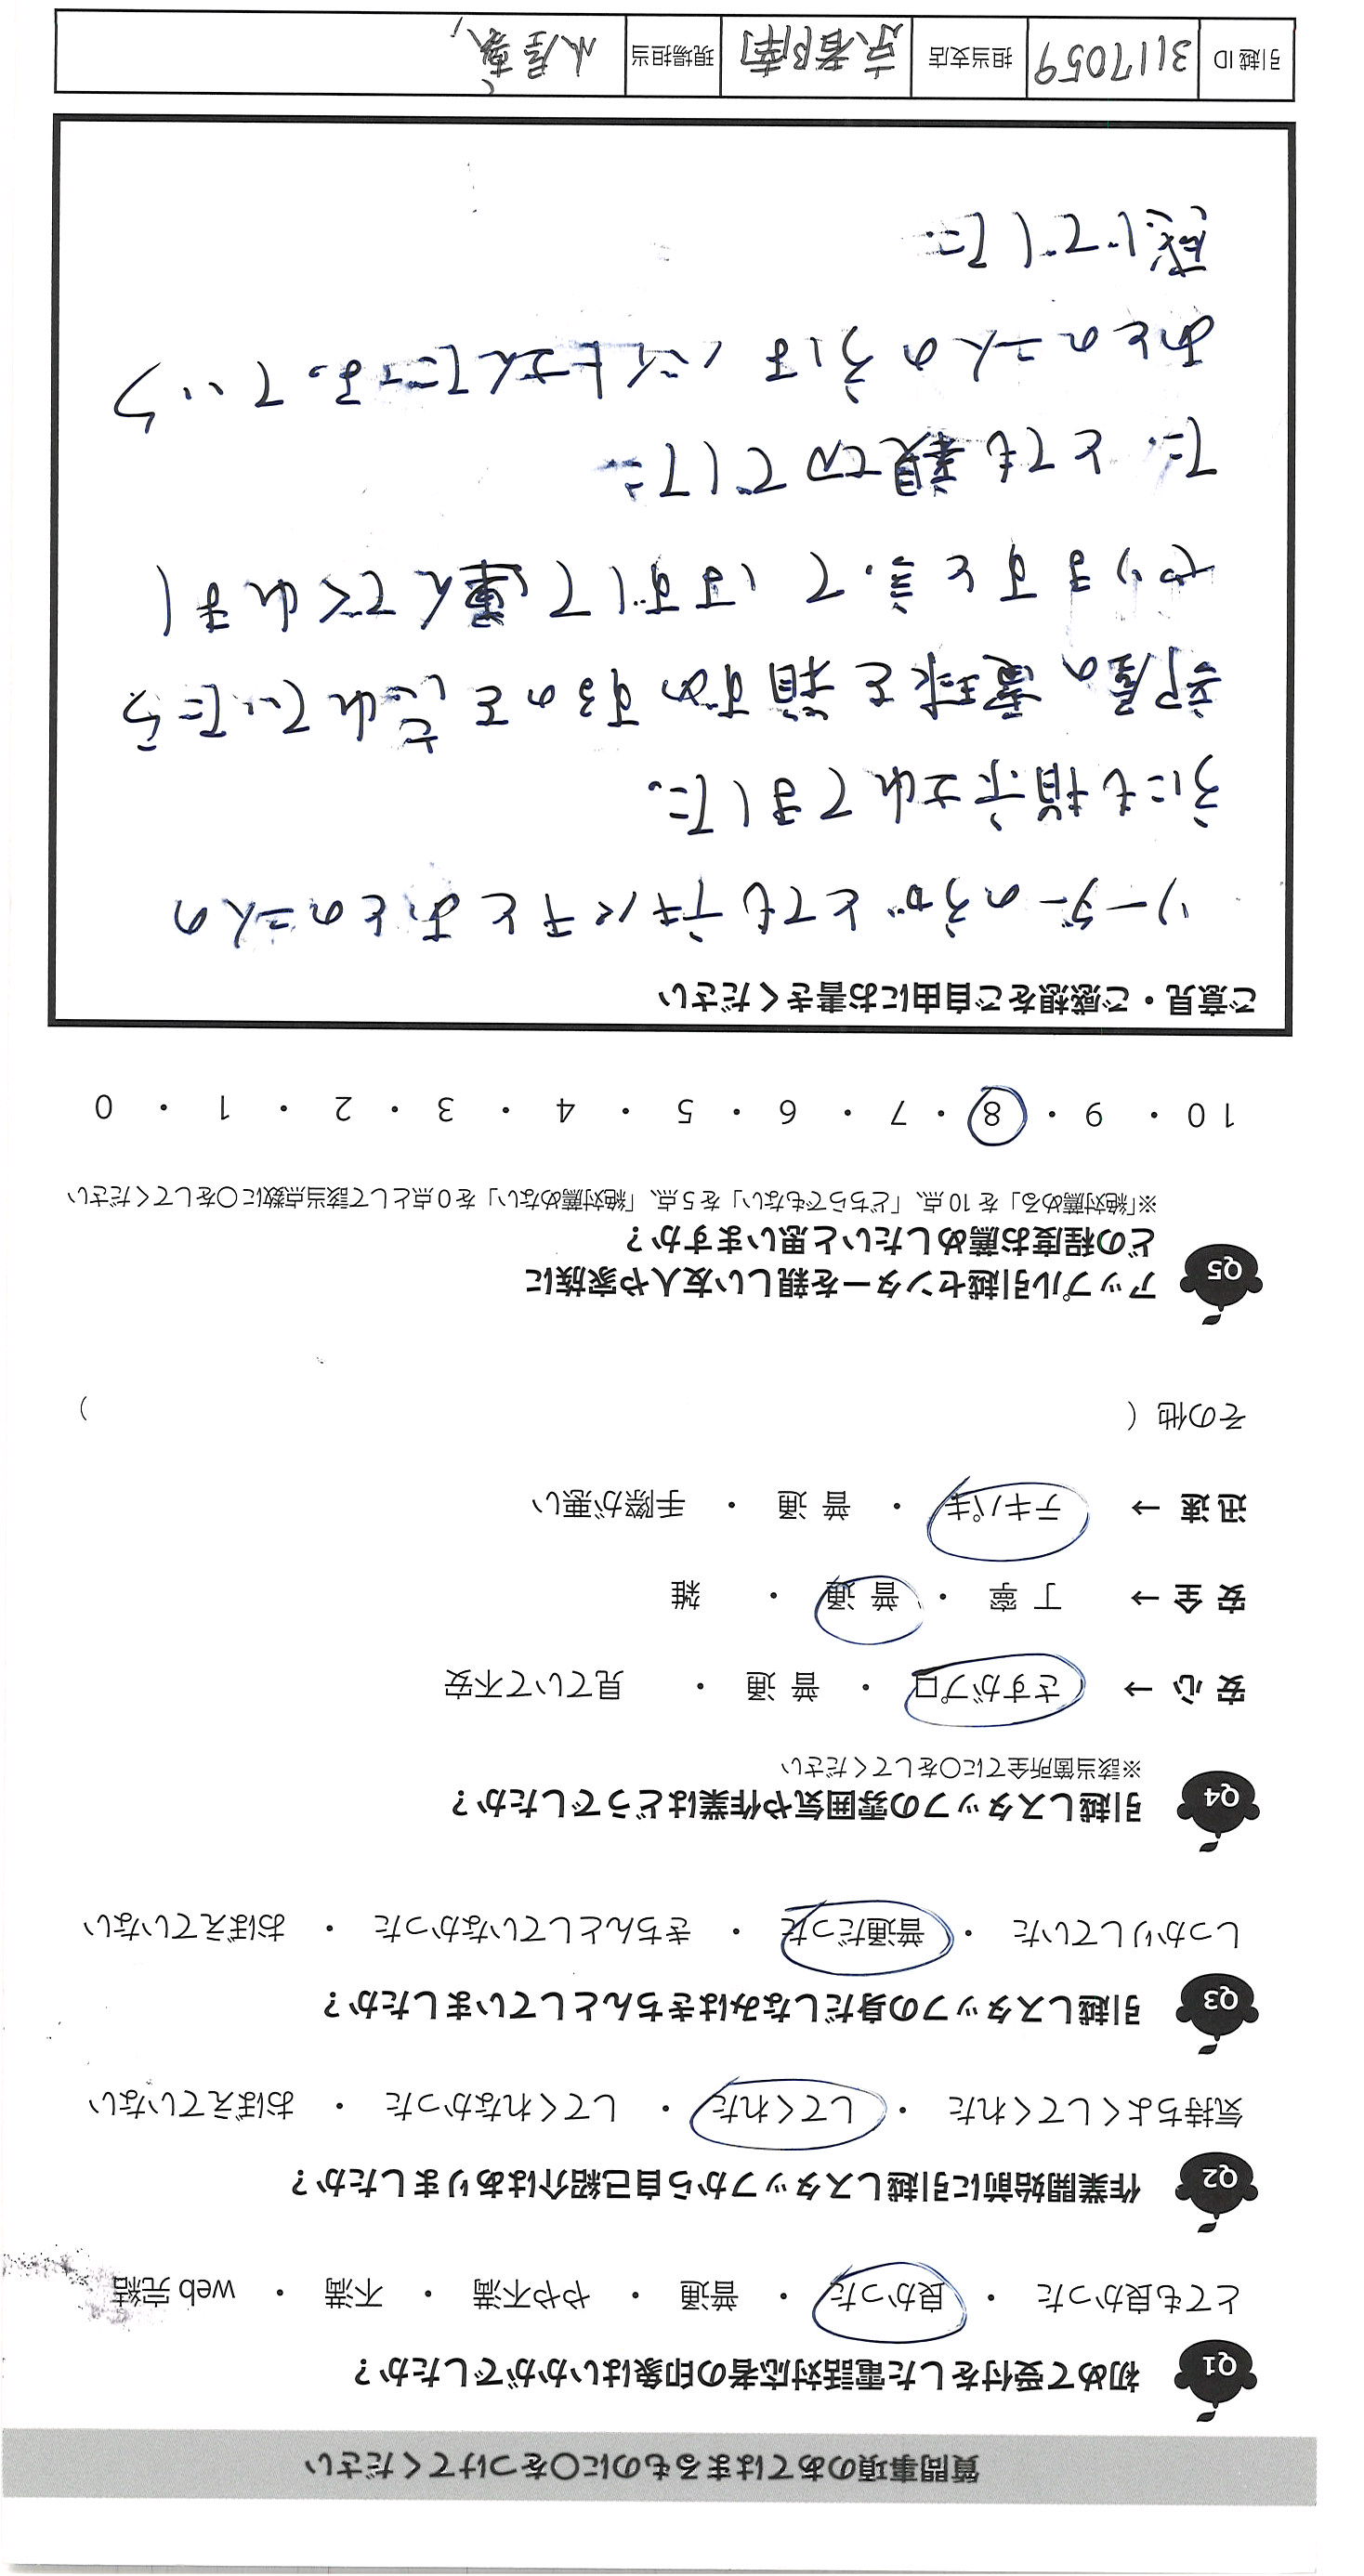 質問事項のあてはまるものに〇をつけてください
Q1 初めて受付をした電話対応者の印象はいかがでしたか？
とても良かった ・ 良かった ・ 普通 ・ やや不満 ・ 不満 ・ web 完結
Q2 作業開始前に引越しスタッフから自己紹介はありましたか？
気持ちよくしてくれた ・ してくれた ・ してくれなかった ・ おぼえていない
Q3 引越しスタッフの身だしなみはきちんとしていましたか？
しっかりしていた ・ 普通だった ・ きちんとしていなかった ・ おぼえていない
Q4 引越しスタッフの雰囲気や作業はどうでしたか？
※該当箇所全てに〇をしてください
安心 → さすがプロ ・ 普通 ・ 見ていて不安
安全 → 丁寧 ・ 普通 ・ 雑
迅速 → テキパキ ・ 普通 ・ 手際が悪い
その他（ ）
Q5 アップル引越センターを親しい友人や家族に
どの程度お薦めしたいと思いますか？
※「絶対薦める」を 10 点、「どちらでもない」を 5 点、「絶対薦めない」を 0 点として該当点数に〇をしてください
10 ・ 9 ・ 8 ・ 7 ・ 6 ・ 5 ・ 4 ・ 3 ・ 2 ・ 1 ・ 0
ご意見・ご感想をご自由にお書きください
リーダーの方がとてもテキパキとあとの二人の
方にも指示されてました。
部屋の電球を頼すのを忘れていたら
やりますと言って、はずして運んでくれまし
た。とても親切でした。
あとの二人の方は、バイトさんでしょうか。
感じでした。
引越 ID 3117059 担当支店 京都南 現場担当